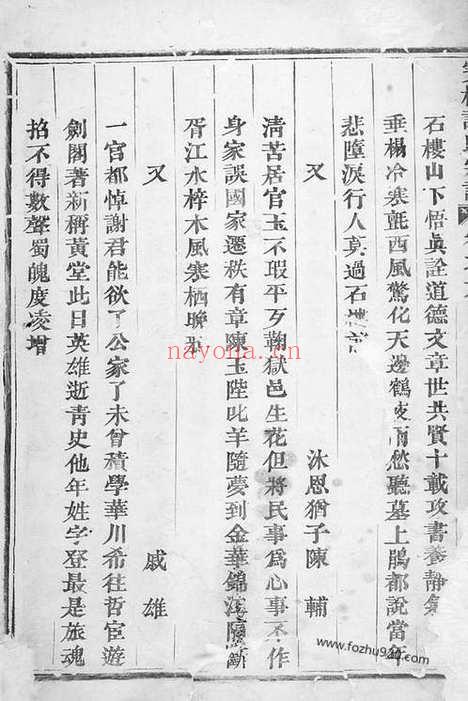 石樓山下悟眞詮道德文章世共賢十載攻書養靜
垂楊冷寒氈西風驚化天邊鶴夜雨愁聽墓上鵑都說當年
悲墮淚行人莫過石樓前
又
沐恩猶子陳輔
清苦居官玉不瑕平亥鞫獄邑生花但將民事爲心事不作
身家誤國家遷秩有章陳玉陛叱羊隨夢到金華錦
胥江水梓木風寒栖晚
又
戚雄
一官都悼謝君能欲了公家了未曾積學華川希往哲宦遊
劍閣著新稱黃堂此日英雄逝靑史他年姓字登最是旅魂
招不得數聲蜀魄度凌增
nayona.cn
www.fozhu920.com